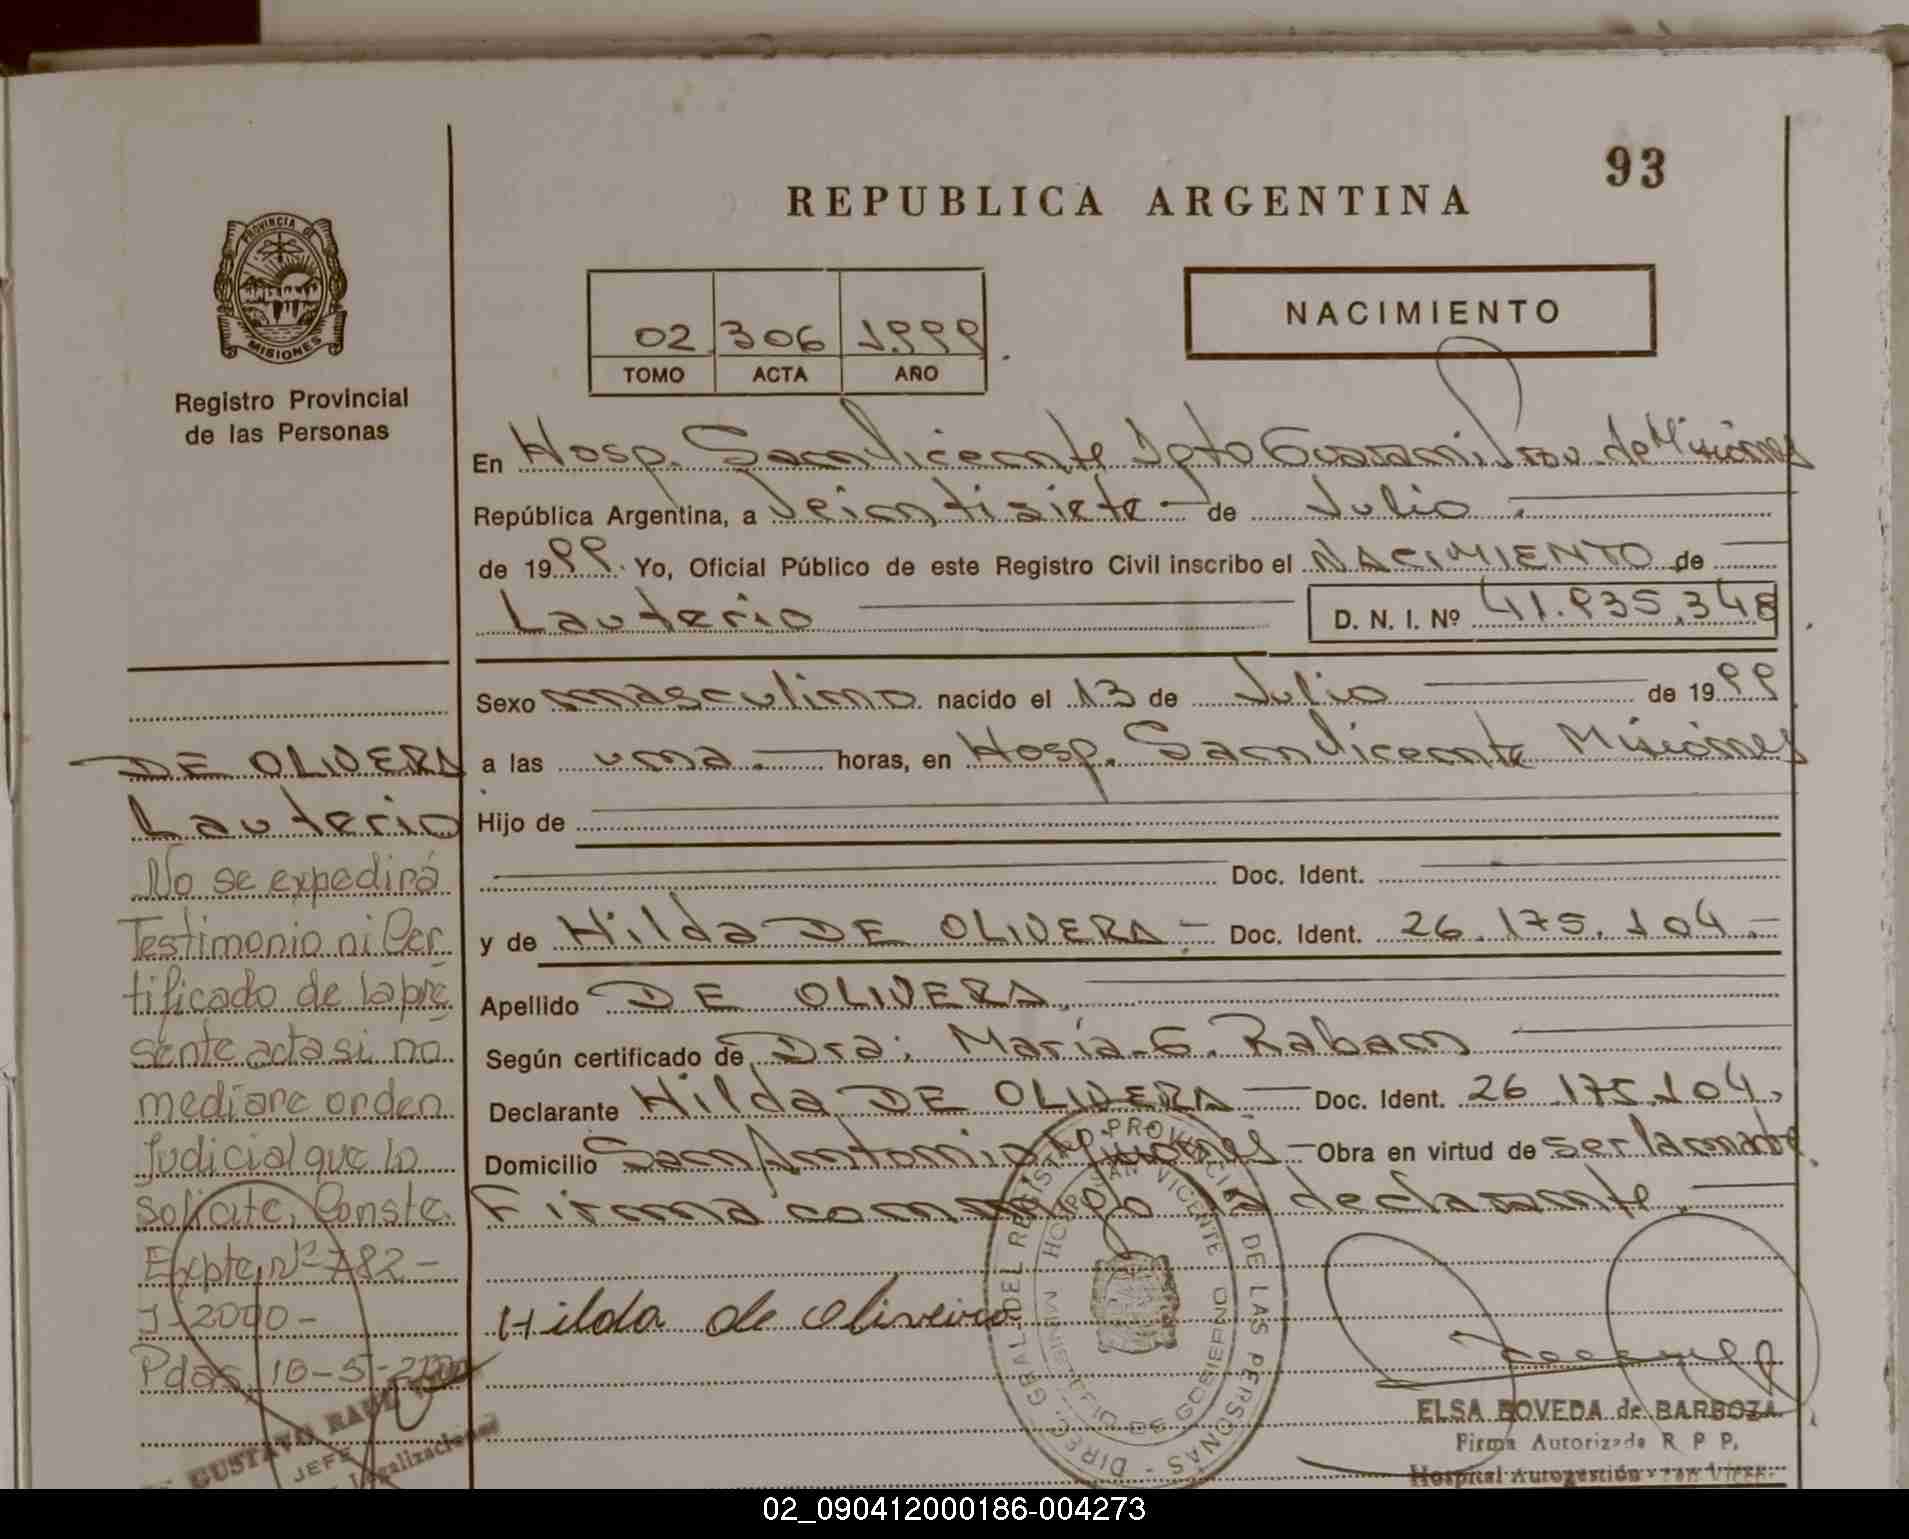 93
REPUBLICA ARGENTINA
PROVINCIA DE
MISIONES
Registro Provincial
de las Personas
02 306 1999
TOMO ACTA AÑO
NACIMIENTO
En Hosp. San Vicente Dpto Guarani Prov. de Misiones
República Argentina, a Veintisiete de Julio
de 1999. Yo, Oficial Público de este Registro Civil inscribo el NACIMIENTO de
Lauterio D. N. I. Nº 41.935.348
Sexo masculino nacido el 13 de Julio de 1999
a las una. horas, en Hosp. San Vicente Misiones
Hijo de
Doc. Ident.
y de Hilda DE OLIVERA Doc. Ident. 26.175.104.
Apellido DE OLIVERA.
Según certificado de Dra: María G. Raban
Declarante Hilda DE OLIVERA Doc. Ident. 26.175.104.
Domicilio San Antonio Misiones Obra en virtud de ser la madre.
Firma conmigo la declarante.
Hilda de Oliveira
DE OLIVERA
Lauterio
No se expedirá
Testimonio ni Cer
tificado de la pre
sente acta si no
mediare orden
Judicial que lo
solicite. Conste.
Expte. Nº 782-
J-2000-
Pdas, 10-5-2000
GUSTAVO RAUL
JEFE
Legalizaciones
DIREC. GRAL. DEL REGISTRO PROVINCIAL DE LAS PERSONAS
HOSP. SAN VICENTE
MINISTERIO DE GOBIERNO
ELSA BOVEDA de BARBOZA
Firma Autorizada R P P.
Hospital Autogestión San Vicen.
02_090412000186-004273